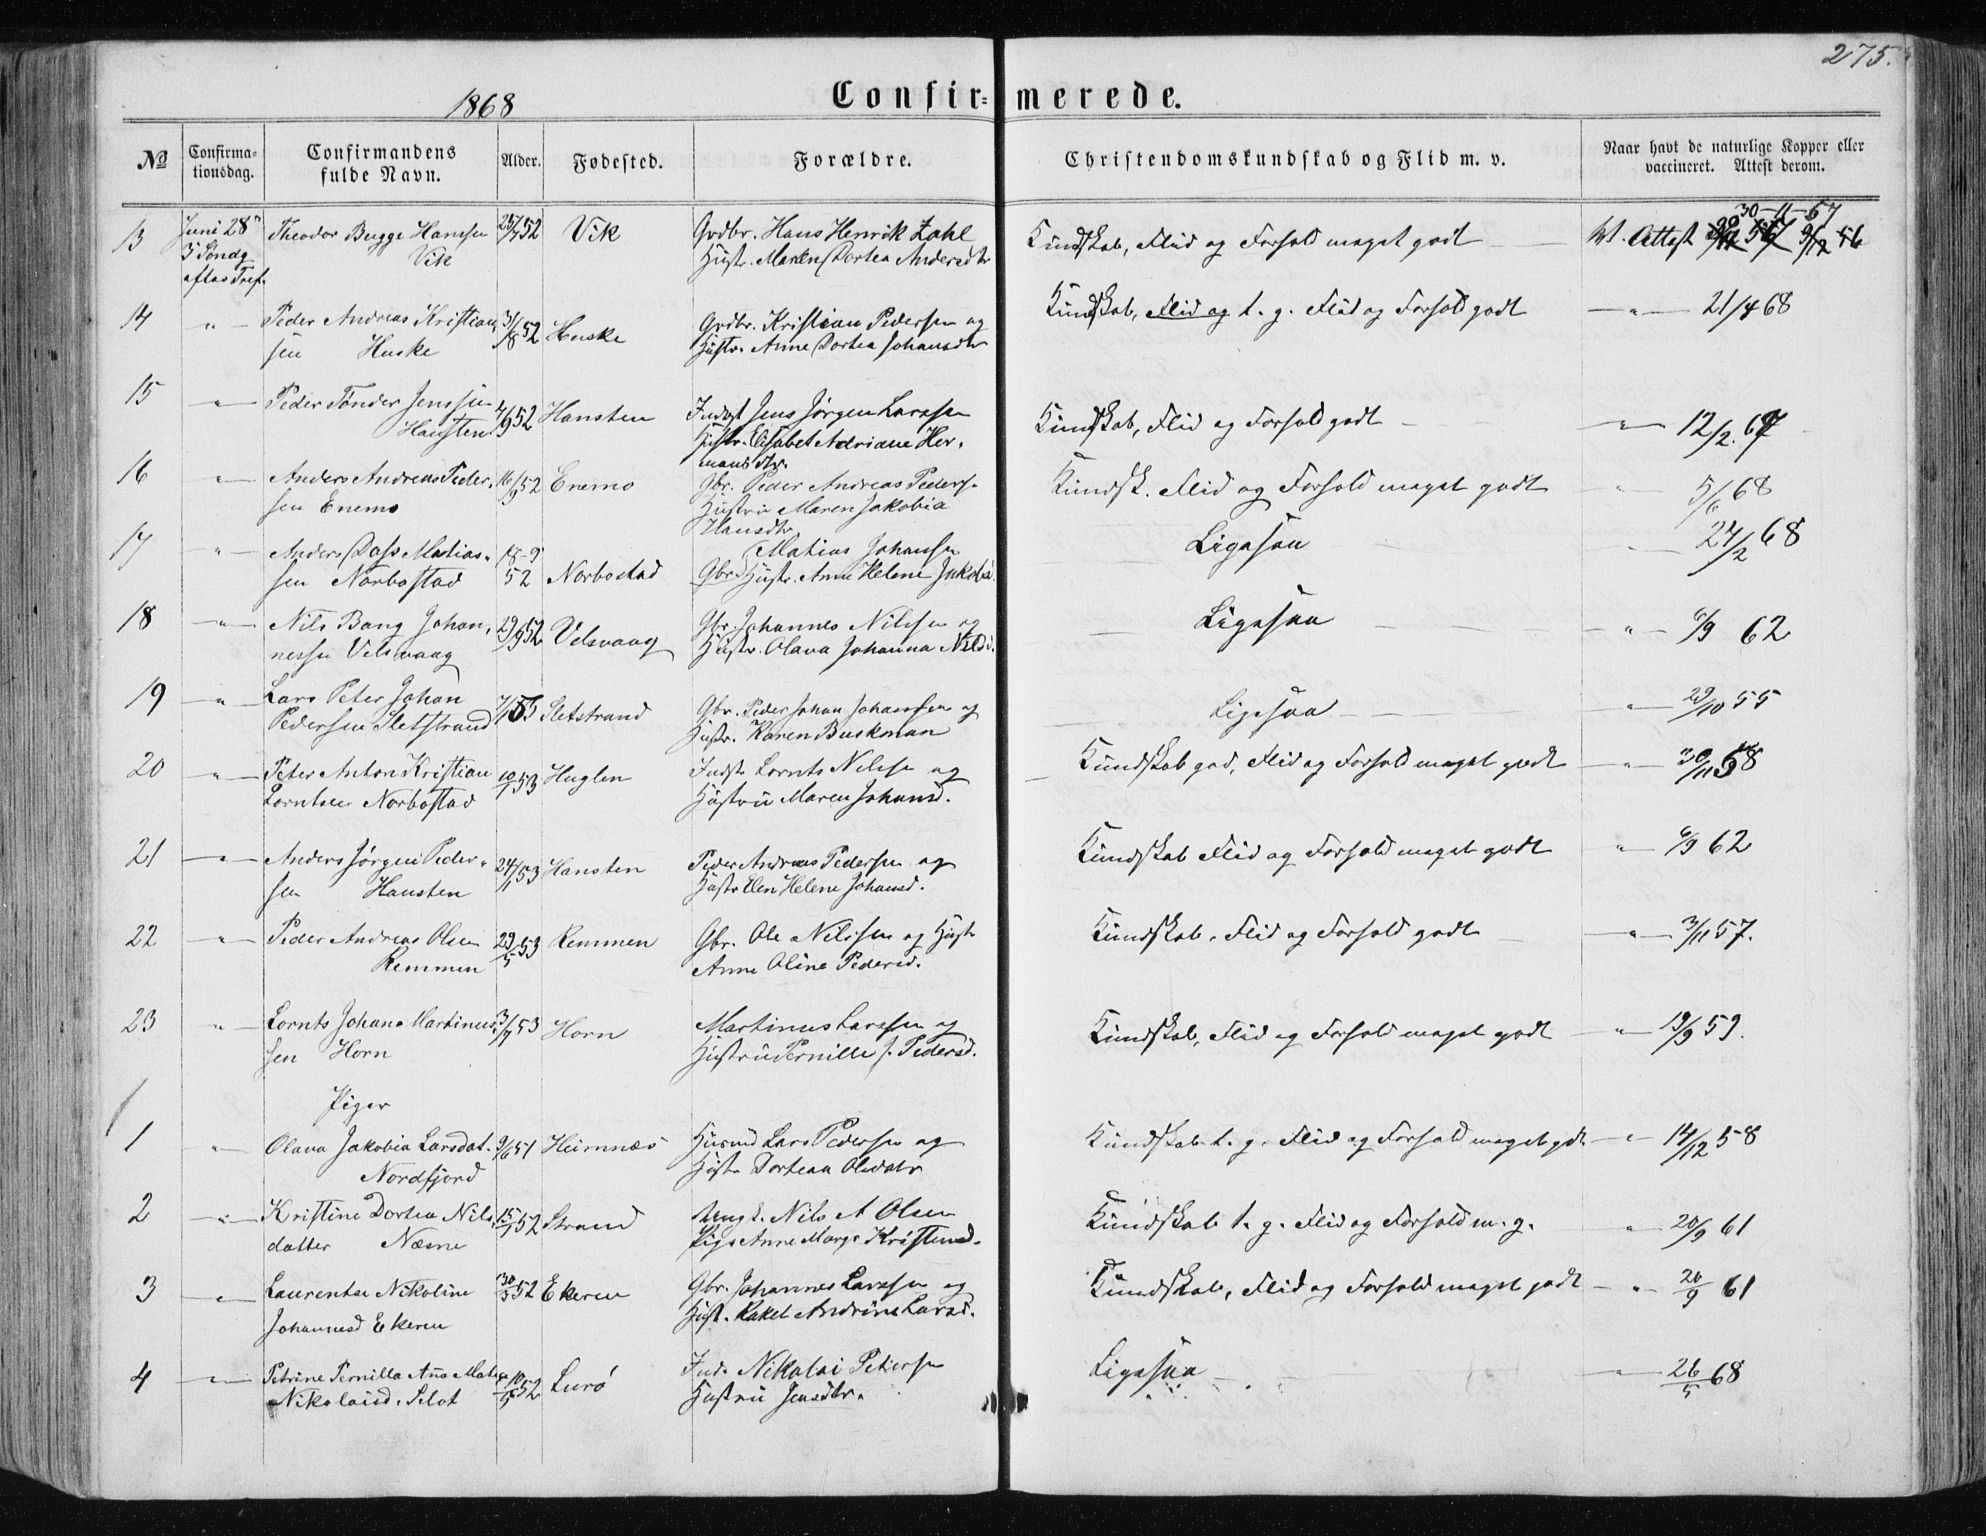 275.
1868
Confir= merede.
No
Confirma-
tionsdag.
Confirmandens
fulde Navn.
Alder.
Fødested.
Forældre.
Christendomskundskab og Flid m. v.
Naar havt de naturlige Kopper eller
vaccineret. Attest derom.
13 Juni 28 Theodor Bugge Hanssen 52 Vik Grdbr. Hans Henrik Zahl Kundskab, Flid og Forhold meget godt Attest 30-11-67
3 Søndg Vik Hustr. Maren Dortea Andersdtr 9/12 56
eftr Tref.
14 " Peder Andreas Kristian 31/8 52 Huske Grdbr. Kristian Pedersen og Kundskab, Flid og t. g. Flid og Forhold godt " 21/4 68
sen Huske Hustr. Anne Dortea Johansdtr
15 " Peder Tønder Jenssen 4/9 52 Hansten Indst Jens Jørgen Larssen Kundskab, Flid og Forhold godt " 12/2. 67
Hansten Hustr. Elisabet Adriane Her-
mansdtr.
16 " Anders Andreas Peder- 16/9 52 Enemo Gbr. Peder Andreas Peders. Kundsk. Flid og Forhold meget godt " 5/6 68
sen Enemo Hustru Maren Jakobia
Hansdtr
17 " Anders Dass Matias- 18-9 Matias Johansen Ligesaa " 24/2 68
sen Norbostad 52 Norbostad Gbr. Hustr. Anne Helene Jakobsd.
18 " Nils Bang Johan- 29/9 52 Velsvaag Gbr. Johannes Nilssen og Ligesaa " 6/9 62
nessen Velsvaag Hustr. Olava Johanna Nilsd.
19 " Lars Peter Johan Sletstrand Gbr. Peder Johan Johanssen og Ligesaa " 29/10 55
Pedersen Sletstrand Hustr. Karen Buskman
20 " Peter Anton Kristian 10/1 53 Huglen Indst Lornts Nilssen og Kundskab god, Flid og Forhold meget godt " 30/11
Lorntsen Norbostad Hustru Maren Johansd.
21 " Anders Jørgen Peder- 24/1 53 Hansten Peder Andreas Pedersen og Kundskab Flid og Forhold meget godt " 6/9 62
sen Hansten Hustr Elen Helene Johansd.
22 " Peder Andreas Olsen 29/5 53 Remmen Gbr. Ole Nilssen og Hustr Kundskab, Flid og Forhold godt " 3/11 57.
Remmen Anne Oline Pedersd.
23 " Lornts Johan Martinus- 53 Horn Martinus Larssen og Kundskab, Flid og Forhold meget godt " 19/9 59.
sen Horn Hustru Pernille J. Pedersd.
Piger
1 " Olava Jakobia Larsdat. 9/6 51 Heimnæs Husmd Lars Pedersen og Kundskab t. g. Flid og Forhold meget gdt " 14/12 58
Nordfjord Hustr Dorteaa Olsdatr
2 " Kristine Dortea Nils- 15/1 52 Strand Ungk. Nils A Olsen Kundskab t. g. Flid og Forhold m. g. " 20/9 61
datter Næsne Pige Anne Margr Kristensd.
3 " Laurentse Nikoline 30/3 52 Ekeren Gbr. Johannes Larssen og Kundskab, Flid og Forhold meget godt " 20/9 61
Johannesd Ekeren Hust. Rakel Andrine Larsd.
4 " Petrine Pernilla Ane Mate 52 Lurø Ind. Nikolai Petersen Ligesaa " 26/5 68
Nikolaisd. Selot Hustru Jensdtr.